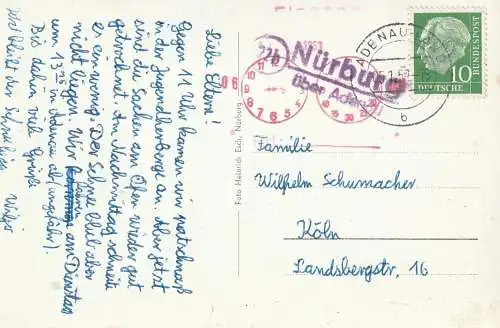 Liebe Eltern!
Gegen 11 Uhr kamen wir patschnaß
in der Jugendherberge an. Aber jetzt
sind die Sachen am Ofen wieder gut
getrocknet. Am Nachmittag schneite
es ein wenig. Der Schnee blieb aber
nicht liegen. Wir kamen am Dienstag
um 13 15 in Adenau ab (ungefähr).
Bis dahin viele Grüße
Wilfer
Jetzt bleibt der Schnee liegen
Foto Heinrich Esch, Nürburg
22b
Nürburg
über Adenau
ADENAU
b
10
DEUTSCHE
BUNDESPOST
Familie
Wilhelm Schumacher
Köln
Landsbergstr, 16